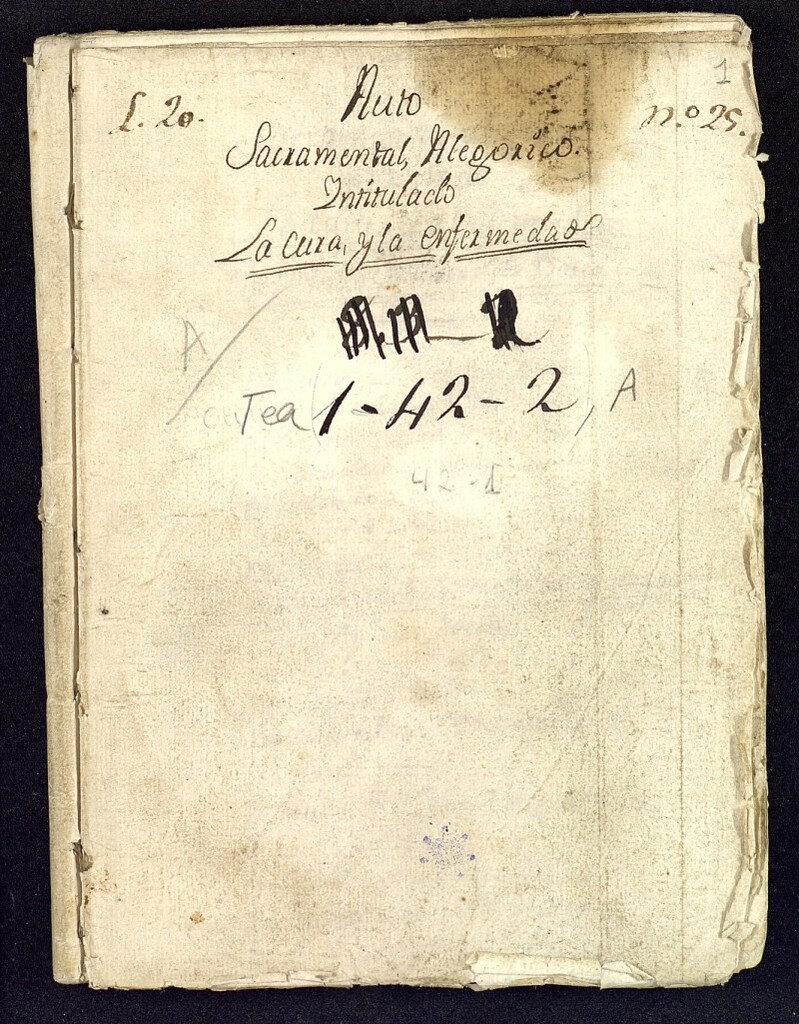 1
L. 20. Auto n.º 25.
Sacramental, Alegorico.
Intitulado
La Cura, y la enfermedad
A
Tea 1-42-2, A
42-1